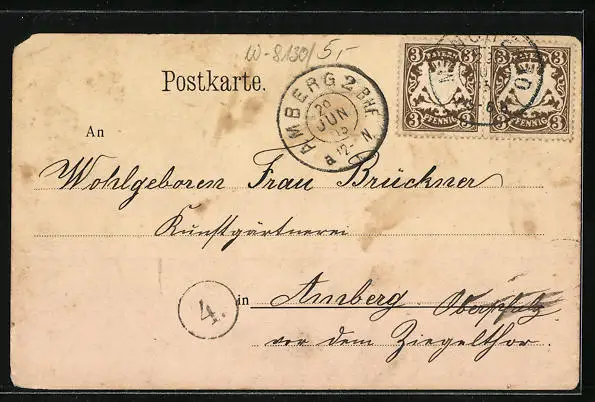 W-8130/5,-
Postkarte.
BAYERN BAYERN
3 3 3 3
PFENNIG PFENNIG
AMBERG 2 BHF.
20
JUN
12-
N.
a
An
Wohlgeboren Frau Brückner
Kunstgärtnerei
in Amberg. Oberpfalz
vor dem Ziegelthor.
4.